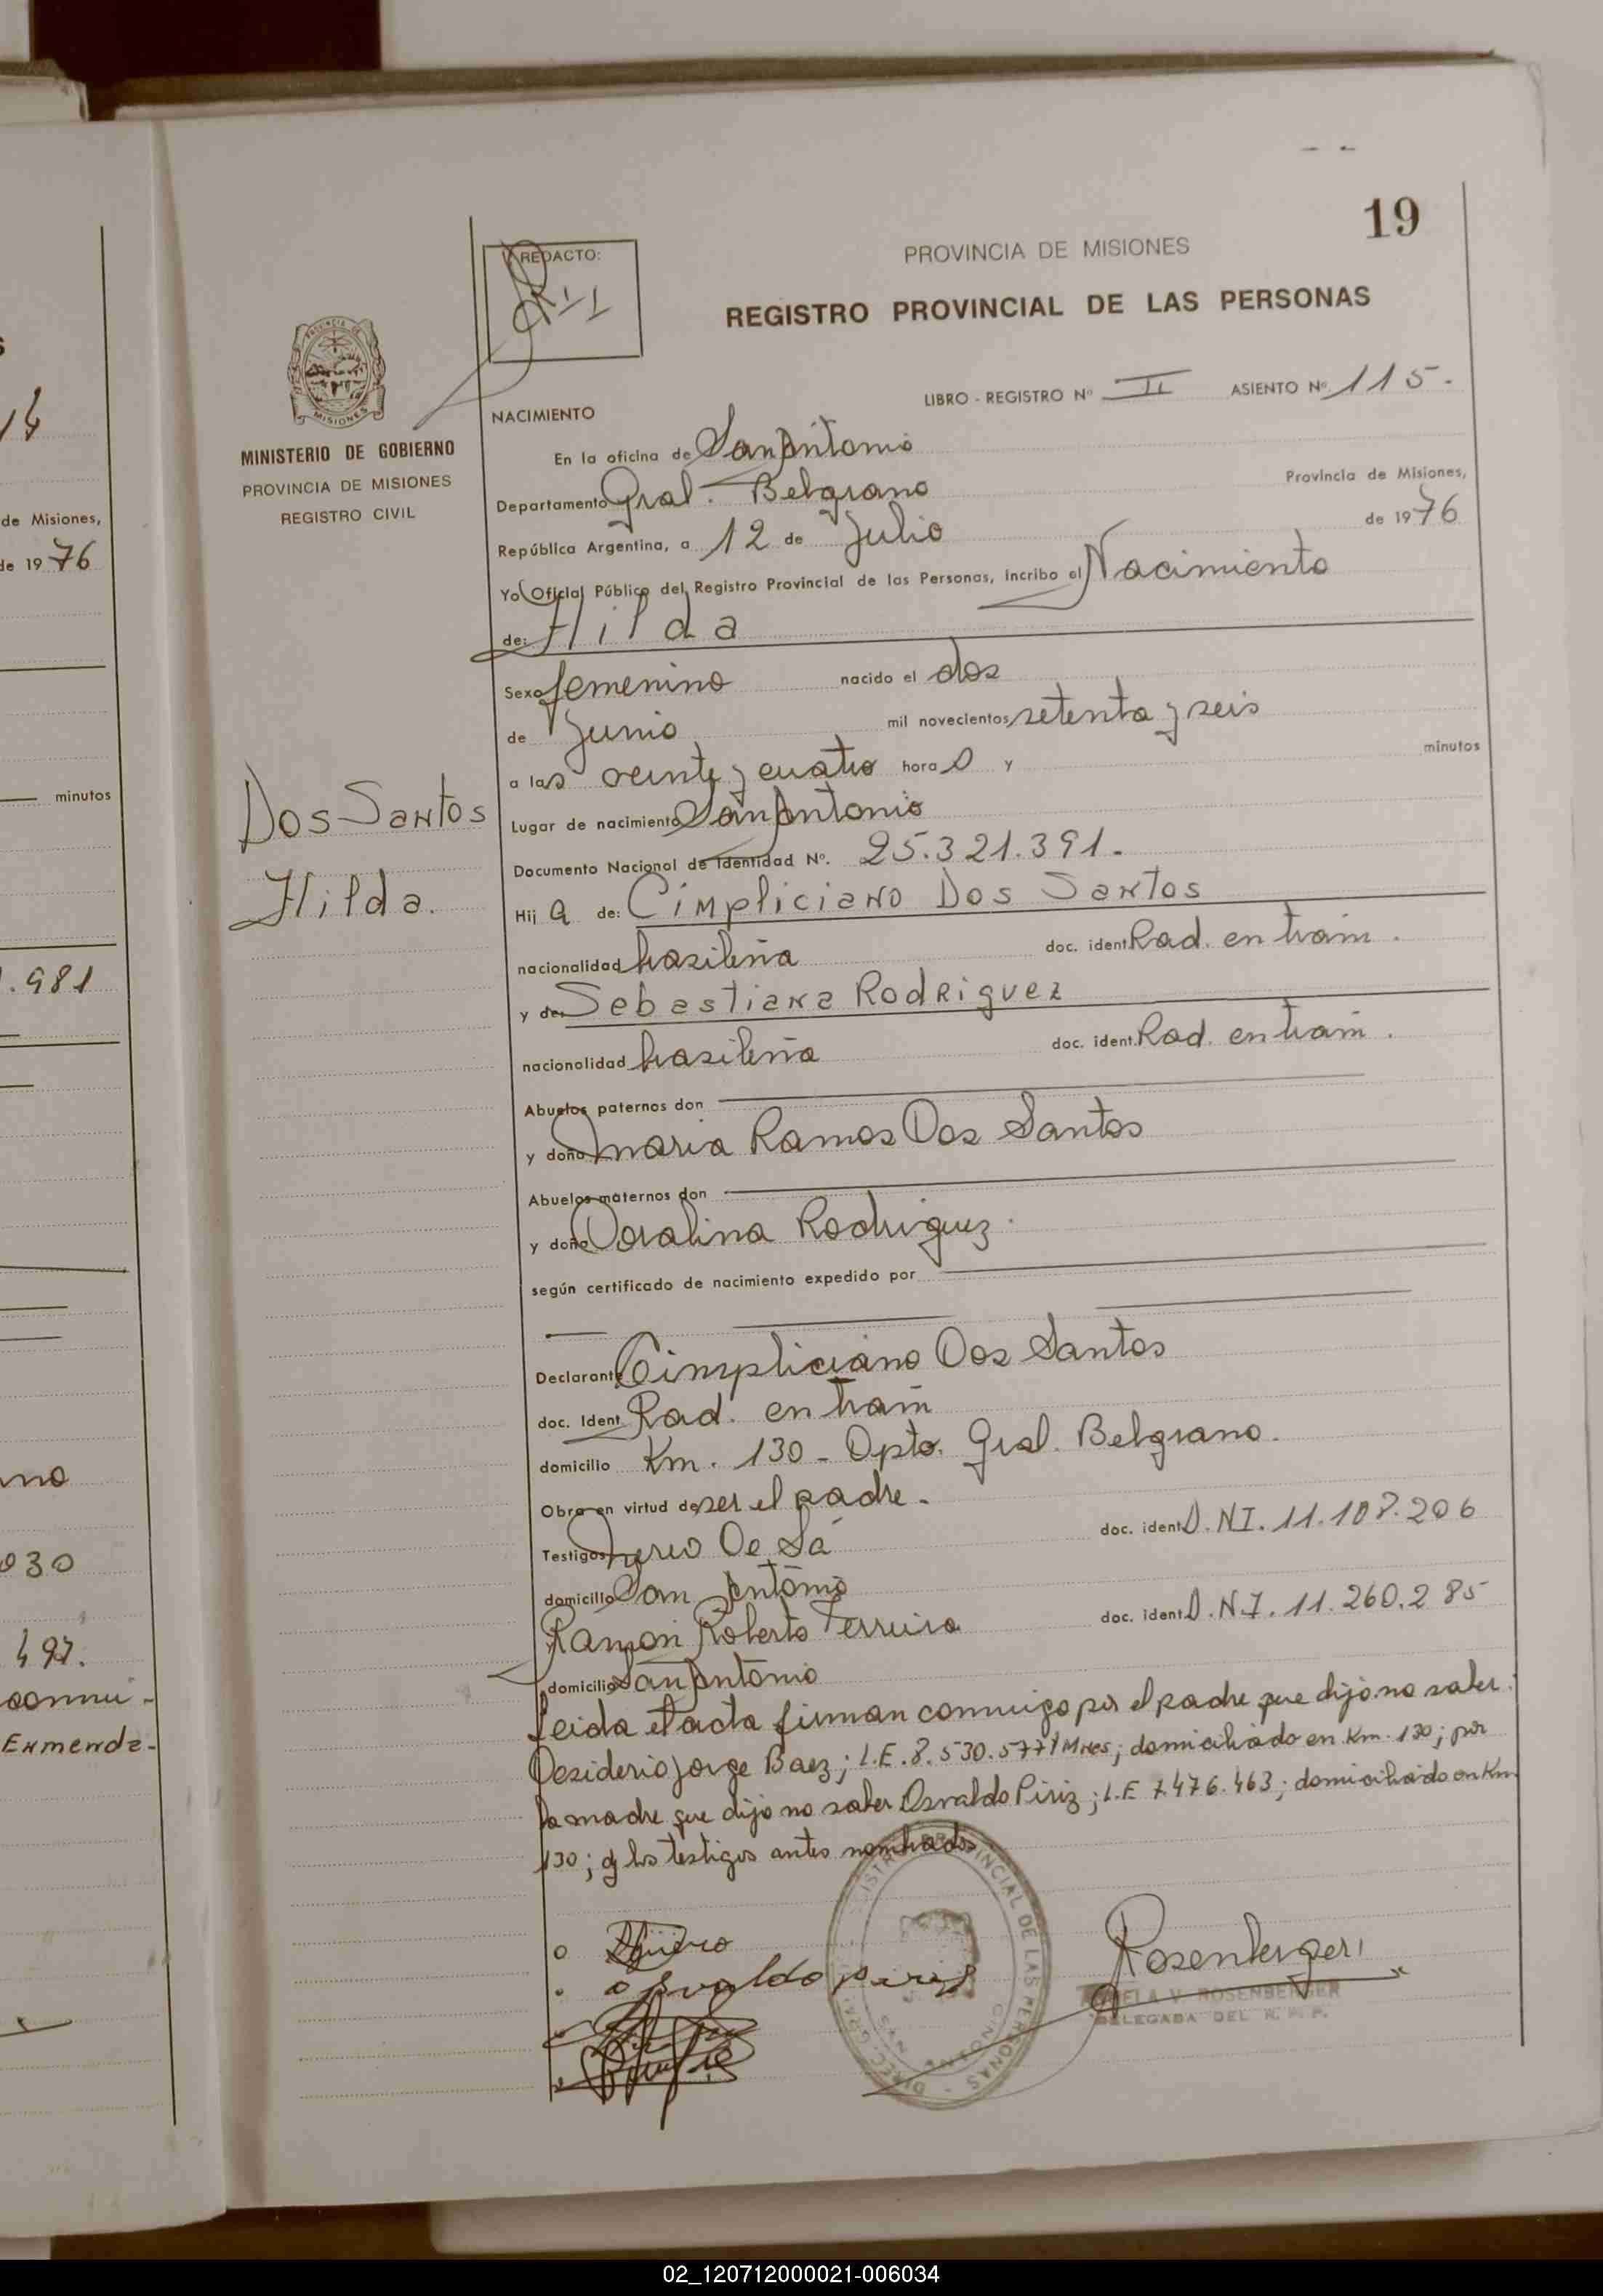 14
de Misiones,
de 1976
minutos
.981
030
497.
Enmenda-
19
REDACTO:
PROVINCIA DE MISIONES
REGISTRO PROVINCIAL DE LAS PERSONAS
MINISTERIO DE GOBIERNO
PROVINCIA DE MISIONES
REGISTRO CIVIL
LIBRO - REGISTRO Nº II ASIENTO Nº 115.-
NACIMIENTO
En la oficina de San Antonio
Departamento Gral. Belgrano Provincia de Misiones,
República Argentina, a 12 de Julio de 1976
Yo Oficial Público del Registro Provincial de las Personas, Incribo el Nacimiento
de: Hilda
Sexo femenino nacido el dos
de Junio mil novecientos setenta y seis
a las veinte y cuatro horas y minutos
Dos Santos
Hilda.
Lugar de nacimiento San Antonio
Documento Nacional de Identidad Nº. 25.321.391.-
Hija de: Cimpliciano Dos Santos
nacionalidad brasileña doc. ident. Rad. en trám.
y de: Sebastiana Rodriguez
nacionolidad brasileña doc. ident. Rad. en trám.
Abuelos paternos don
y doña Maria Ramos Dos Santos
Abuelos maternos don
y doña Doralina Rodriguez.
según certificado de nacimiento expedido por
Declarante Cimpliciano Dos Santos
doc. Ident. Rad. en trám
domicilio Km. 130 - Dpto. Gral. Belgrano.
Obra en virtud de ser el padre.-
Testigos Nereo De Sá doc. ident. D.N.I. 11.108.206
domicilio San Antonio
Ramon Roberto Ferreira doc. ident. D.N.I. 11.260.285
domicilio San Antonio
Leida el acta firman conmigo por el padre que dijo no saber:
Desiderio Jorge Baez; L.E. 8.530.577 Mnes; domiciliado en Km. 130; por
la madre que dijo no saber Osvaldo Piriz; L.E 7.476.463; domiciliado en Km
130; y los testigos antes nombrados
osvaldo piriz
Rosenberger
ELA V. ROSENBERGER
DELEGADA DEL R. P. P.
PROVINCIAL DE LAS PERSONAS
02_120712000021-006034